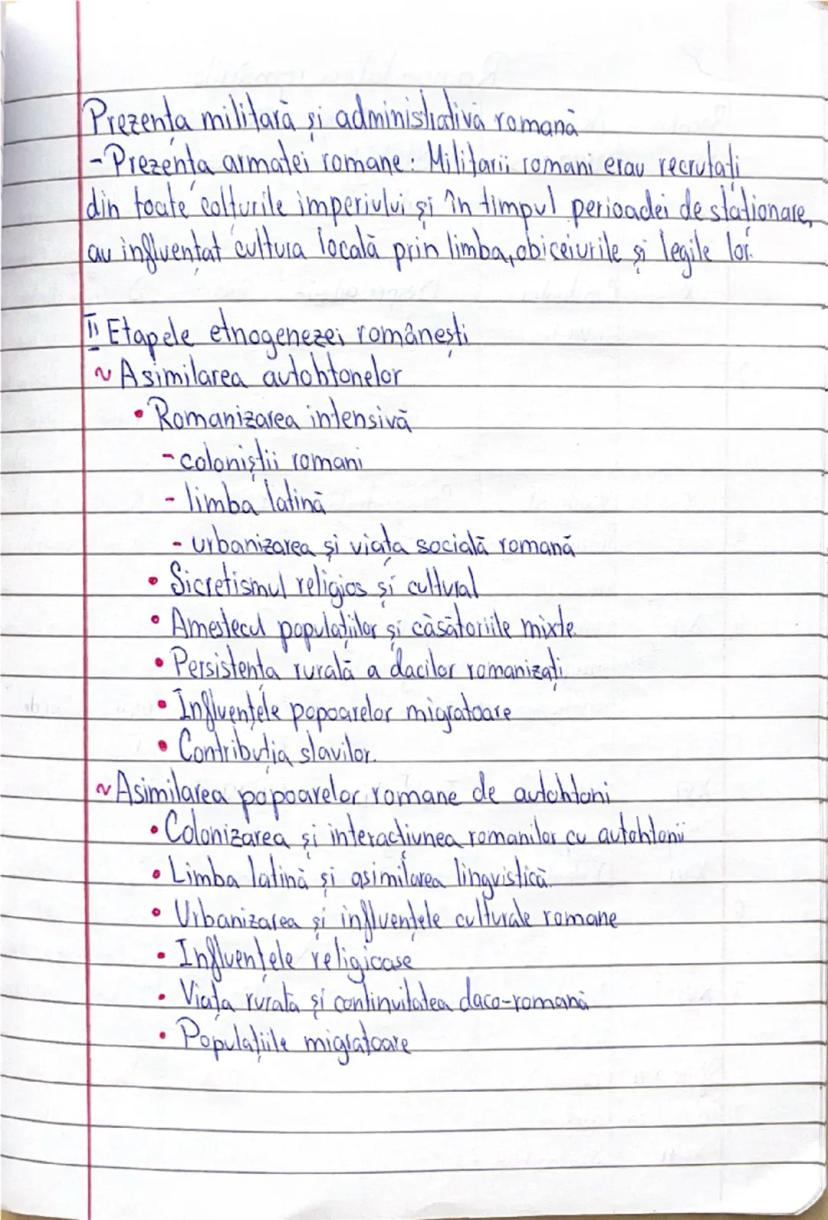 Prezența militară și administrativă romană
- Prezența armatei romane: Militarii romani erau recrutați
din toate colțurile imperiului și în timpul perioadei de staționare,
au influențat cultura locală prin limba, obiceiurile și legile lor.
II Etapele etnogenezei românești
~ Asimilarea autohtonelor
• Romanizarea intensivă
- coloniștii romani
- limba latină
- urbanizarea și viața socială romană
• Sicretismul religios și cultural
• Amestecul populațiilor și căsătoriile mixte.
• Persistența rurală a dacilor romanizați.
• Influențele popoarelor migratoare
• Contribuția slavilor.
~ Asimilarea popoarelor romane de autohtoni
• Colonizarea și interacțiunea romanilor cu autohtonii
• Limba latină și asimilarea lingvistică.
• Urbanizarea și influențele culturale romane
• Influențele religioase
• Viața rurală și continuitatea daco-romană
• Populațiile migratoare